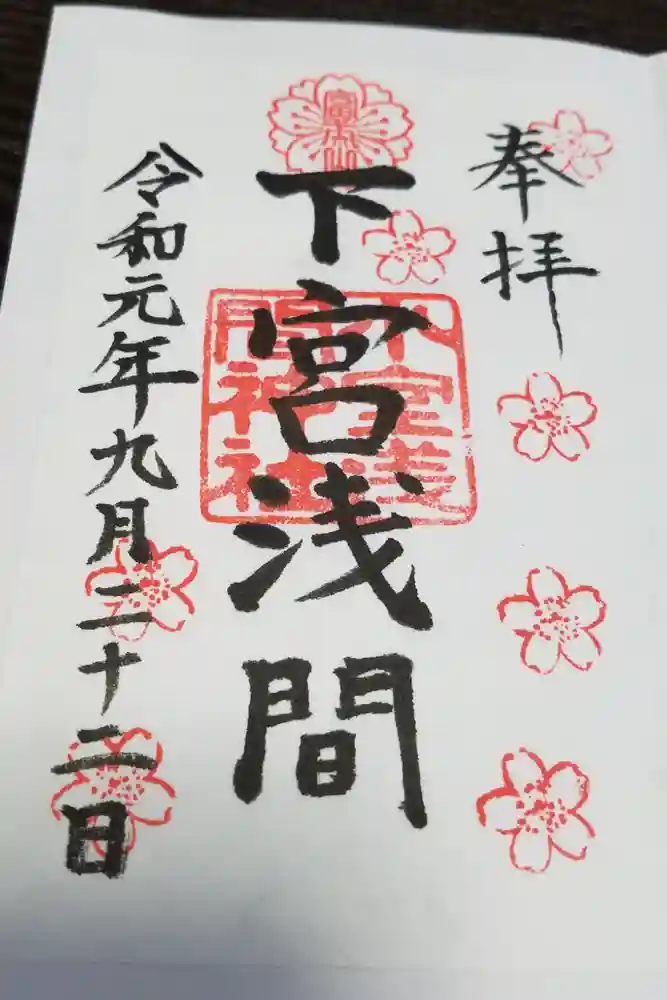 奉拝
富士山
下宮浅間
下宮浅
間神社
令和元年九月二十二日